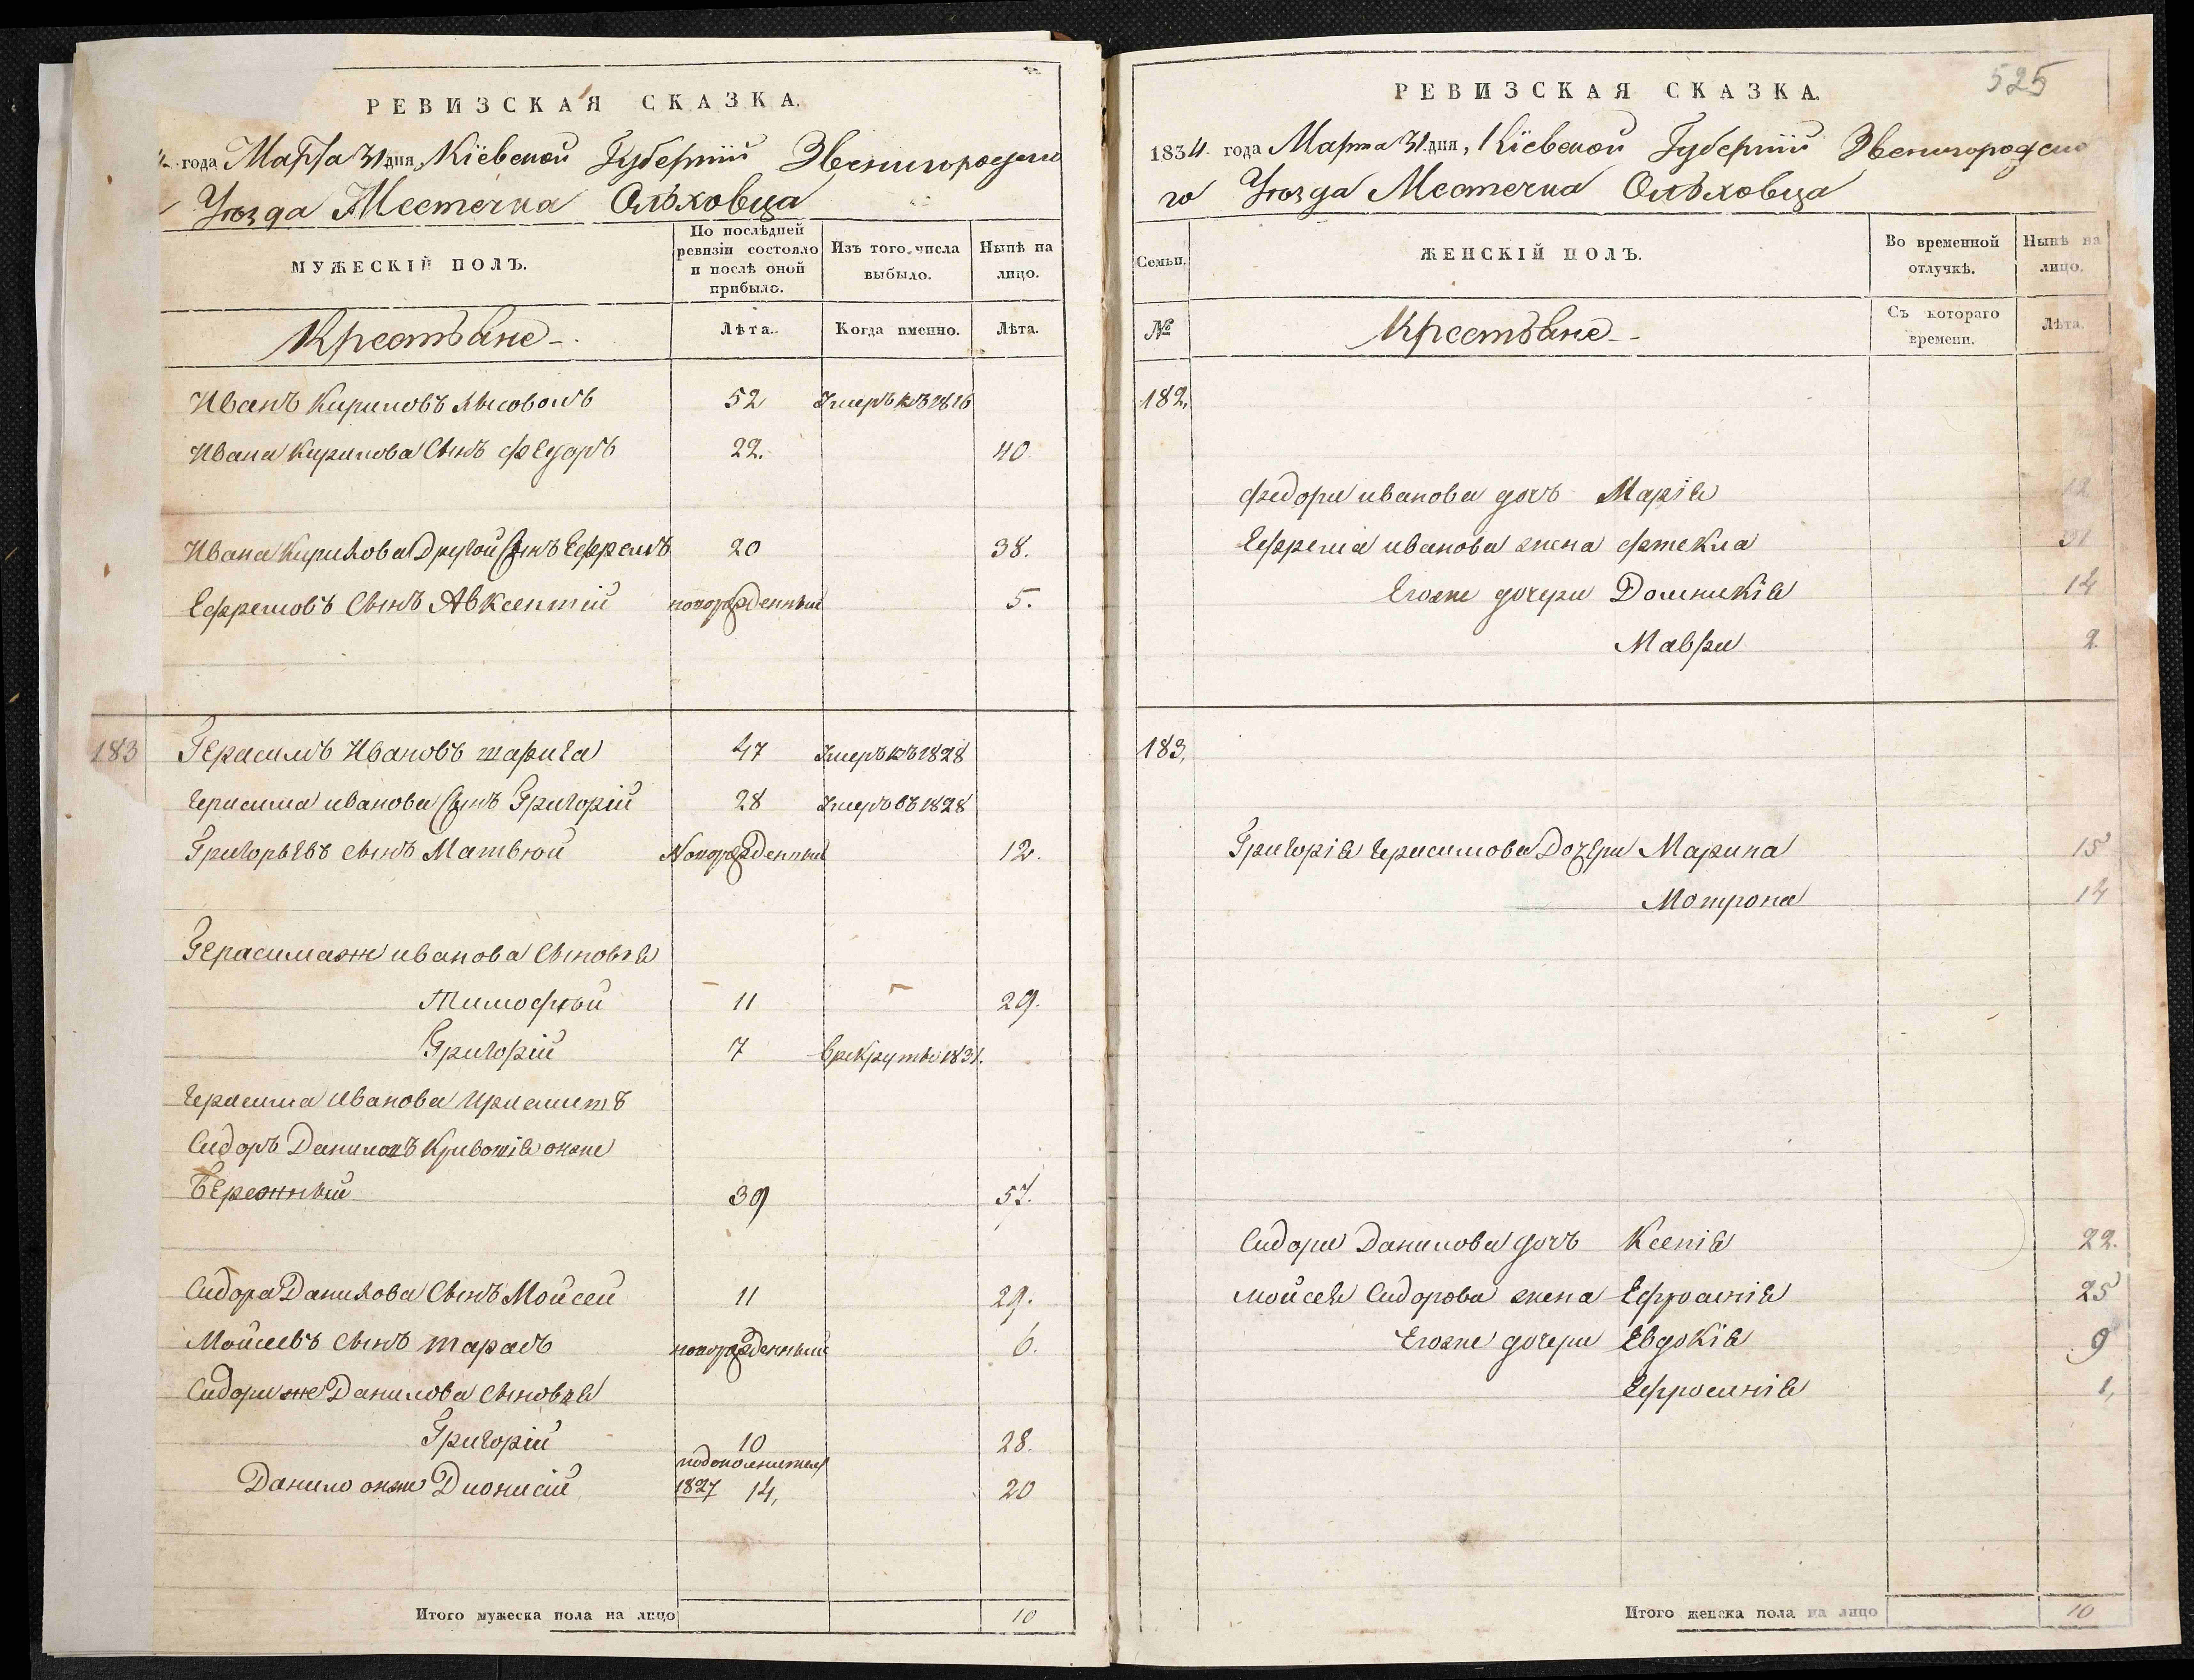 РЕВИЗСКАЯ СКАЗКА.
года Марта 31 дня, Кіевской Губерніи Звенигородскаго
Уѣзда Местечка Ольховца
МУЖЕСКІЙ ПОЛЪ.
По послѣдней ревизіи состояло и послѣ оной прибыло.
Изъ того числа выбыло.
Нынѣ на лицо.
Крестьяне
Лѣта.
Когда именно.
Лѣта.
Иванъ Кириловъ 52 Умеръ въ 1826
Ивана Кирилова Сынъ Федоръ 22. 40
Ивана Кирилова Другой Сынъ Ефремъ 20 38.
Ефремовъ Сынъ Авксентій новорожденный 5.
183 Герасимъ Ивановъ 47 Умеръ въ 1828
Герасима иванова Сынъ Григорій 28 Умеръ въ 1828
Григорьевъ сынъ Матвѣй Новорожденный 12.
Герасимаже иванова Сыновья
Тимофѣй 11 29.
Григорій 7 Врекруты 1831.
Герасима Иванова
Сидоръ Даниловъ онже
Бережный 39 57.
Сидора Данилова Сынъ Мойсей 11 29.
Мойсеевъ Сынъ Тарасъ новорожденный 6.
Сидораже Данилова Сыновья
Григорій 10 28.
Данило онже Дионисій 1827 14, 20
Итого мужеска пола на лицо 10
525
РЕВИЗСКАЯ СКАЗКА.
1834 года Марта 31 дня, Кіевской Губерніи Звенигородска
го Уѣзда Местечка Ольховца
Семьи.
ЖЕНСКІЙ ПОЛЪ.
Во временной отлучкѣ.
Нынѣ на лицо.
№
Крестьяне
Съ котораго времени.
Лѣта.
182,
Федора иванова дочь Марія 12
Ефрема иванова жена Фтекла 31
Егоже дочери Домникія 14
Мавра 2.
183,
Григорія Герасимова Дочери Марина 15
Мотрона 14
Сидора Данилова дочь Ксенія 22.
Мойсея Сидорова жена Ефросинія 25
Егоже дочери Евдокія 9
Ефросинія 1,
Итого женска пола на лицо 10